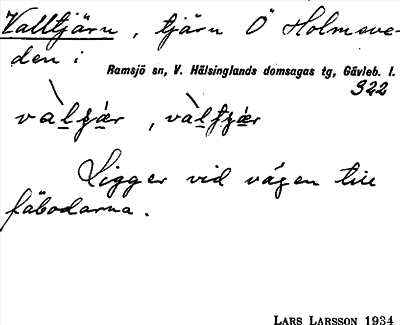 Valltjärn, tjärn Ö Holmsve-
den i
Ramsjö sn, V. Hälsinglands domsagas tg, Gävleb. l.
922
Ligger vid vägen till
fäbodarna.
LARS LARSSON 1934